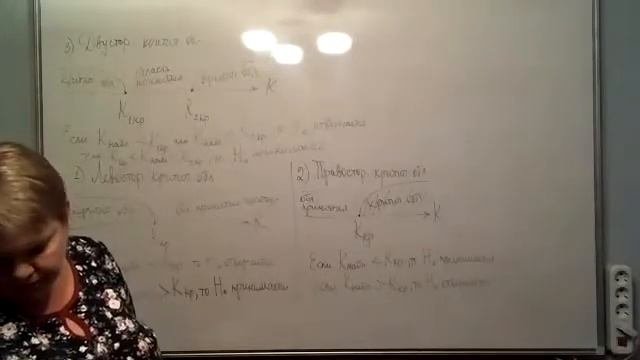 3) Двустор. критич. обл.
критич. обл. область принятия критич. обл.
K₁кр K₂кр K
Если Kнабл < K₁кр или Kнабл > K₂кр H₀ отвергаем
K₁кр < Kнабл < K₂кр H₀ принимаем
1) Левостор. критич. обл.
критич. обл. обл. принятия
Kкр K
то H₀ отвергаем
> Kкр, то H₀ принимаем
2) Правостор. критич. обл.
обл. принятия критич. обл.
Kкр K
Если Kнабл < Kкр, то H₀ принимаем
если Kнабл > Kкр, то H₀ отвергаем